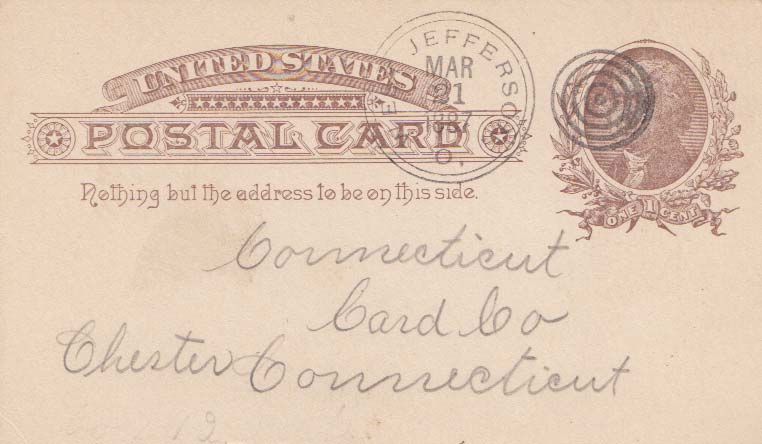 UNITED STATES
POSTAL CARD
Nothing but the address to be on this side.
JEFFERSO
MAR
21
1887
O.
ONE 1 CENT
Connecticut
Card Co
Chester Connecticut
12